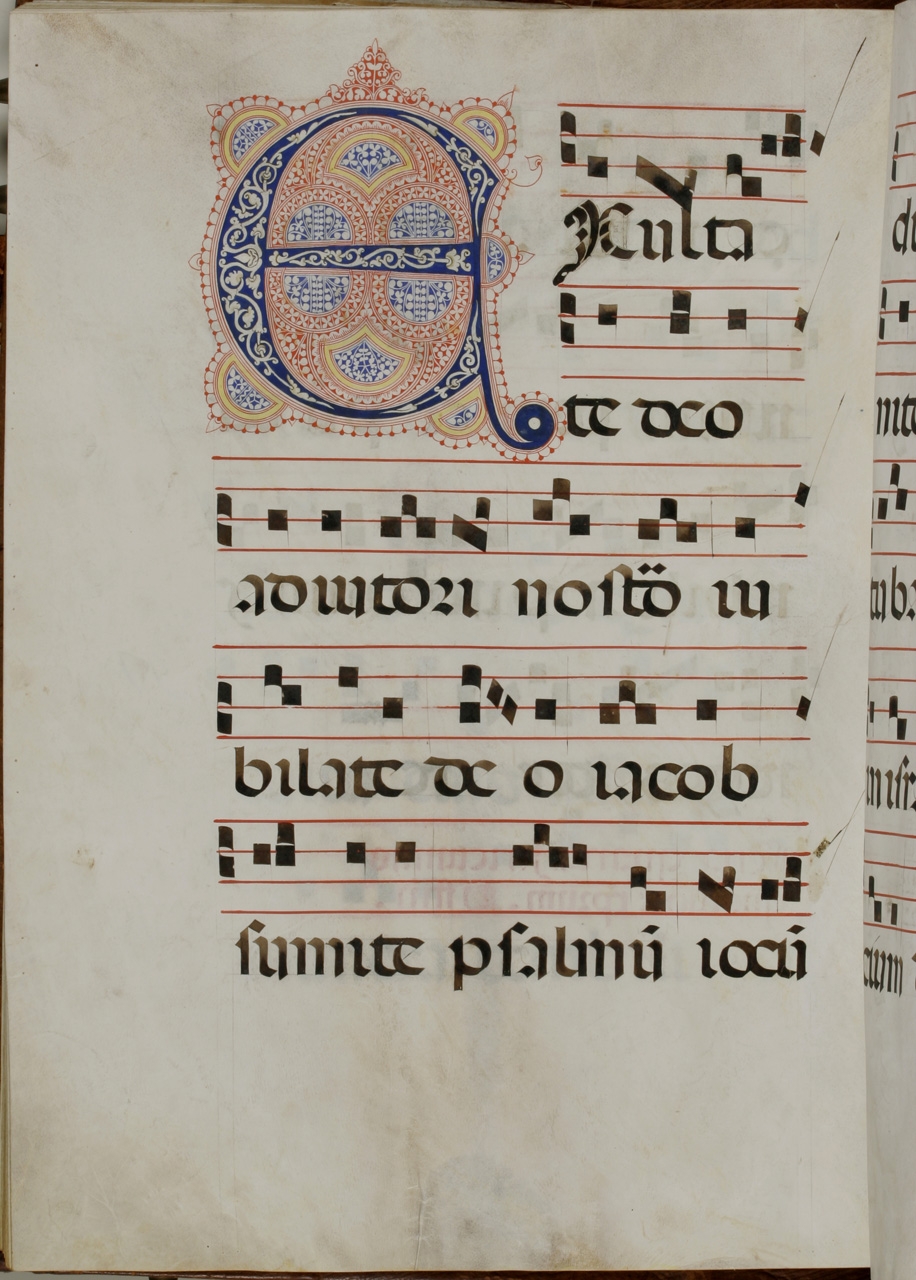 EXulta
te deo
adiutori nostõ iu
bilate de o iacob
sumite psalmũ iocũ